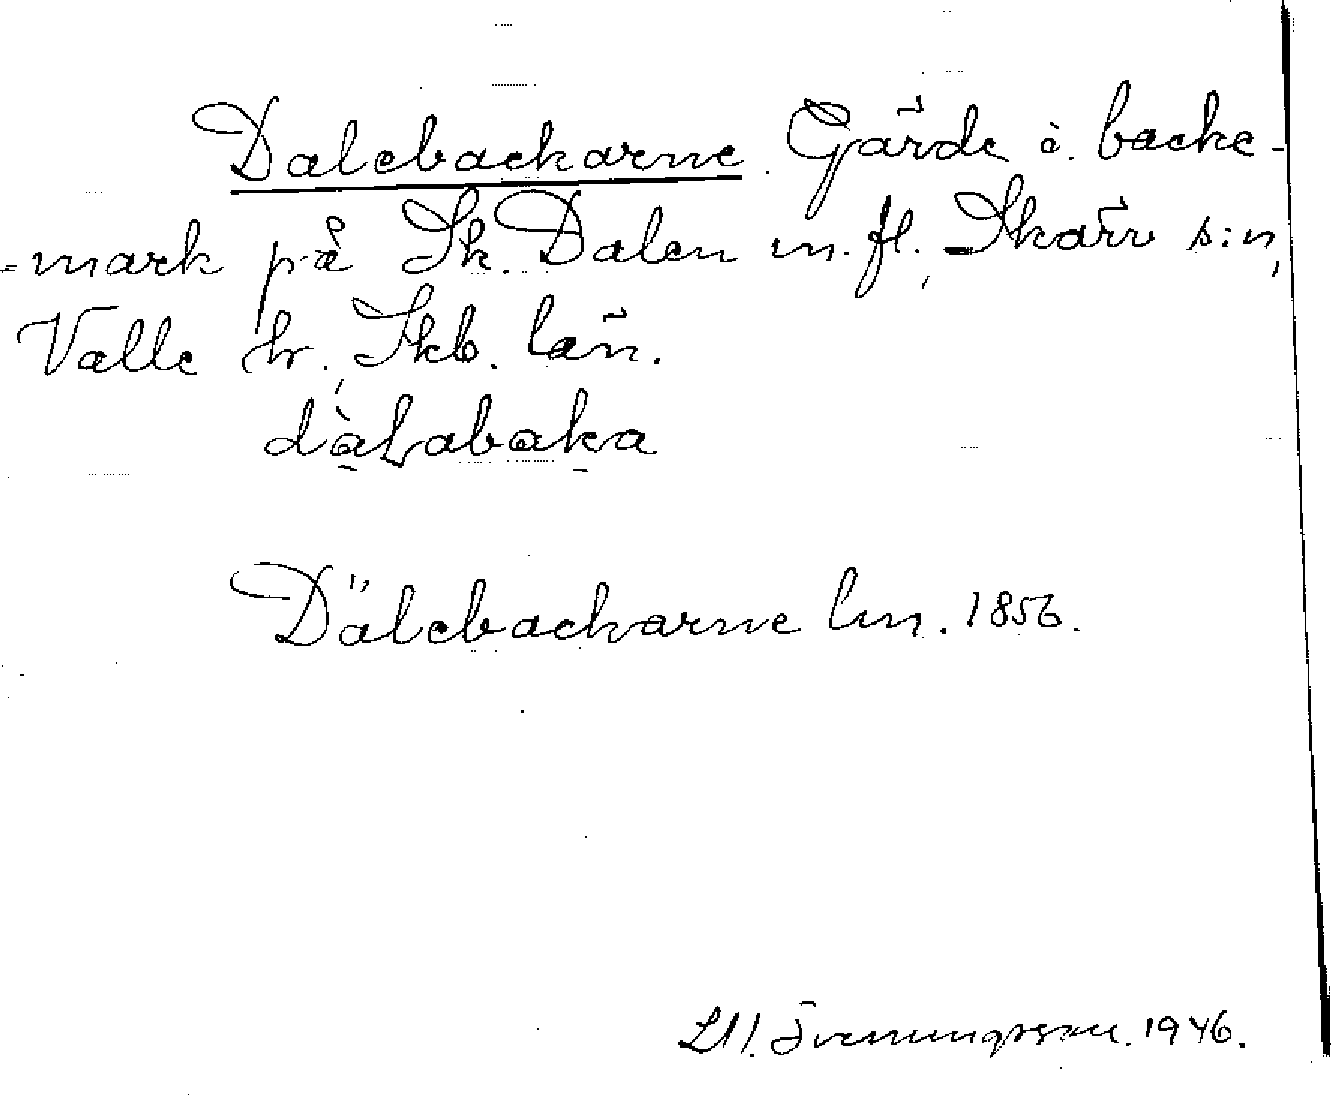 Dalebackarne. Gärde å backe-
-mark på Sk. Dalen m. fl., Skärv s:n,
Valle hr., Skb. län.
dàLabaka
Dälebackarne lm. 1856.
Svenungsson. 1946.